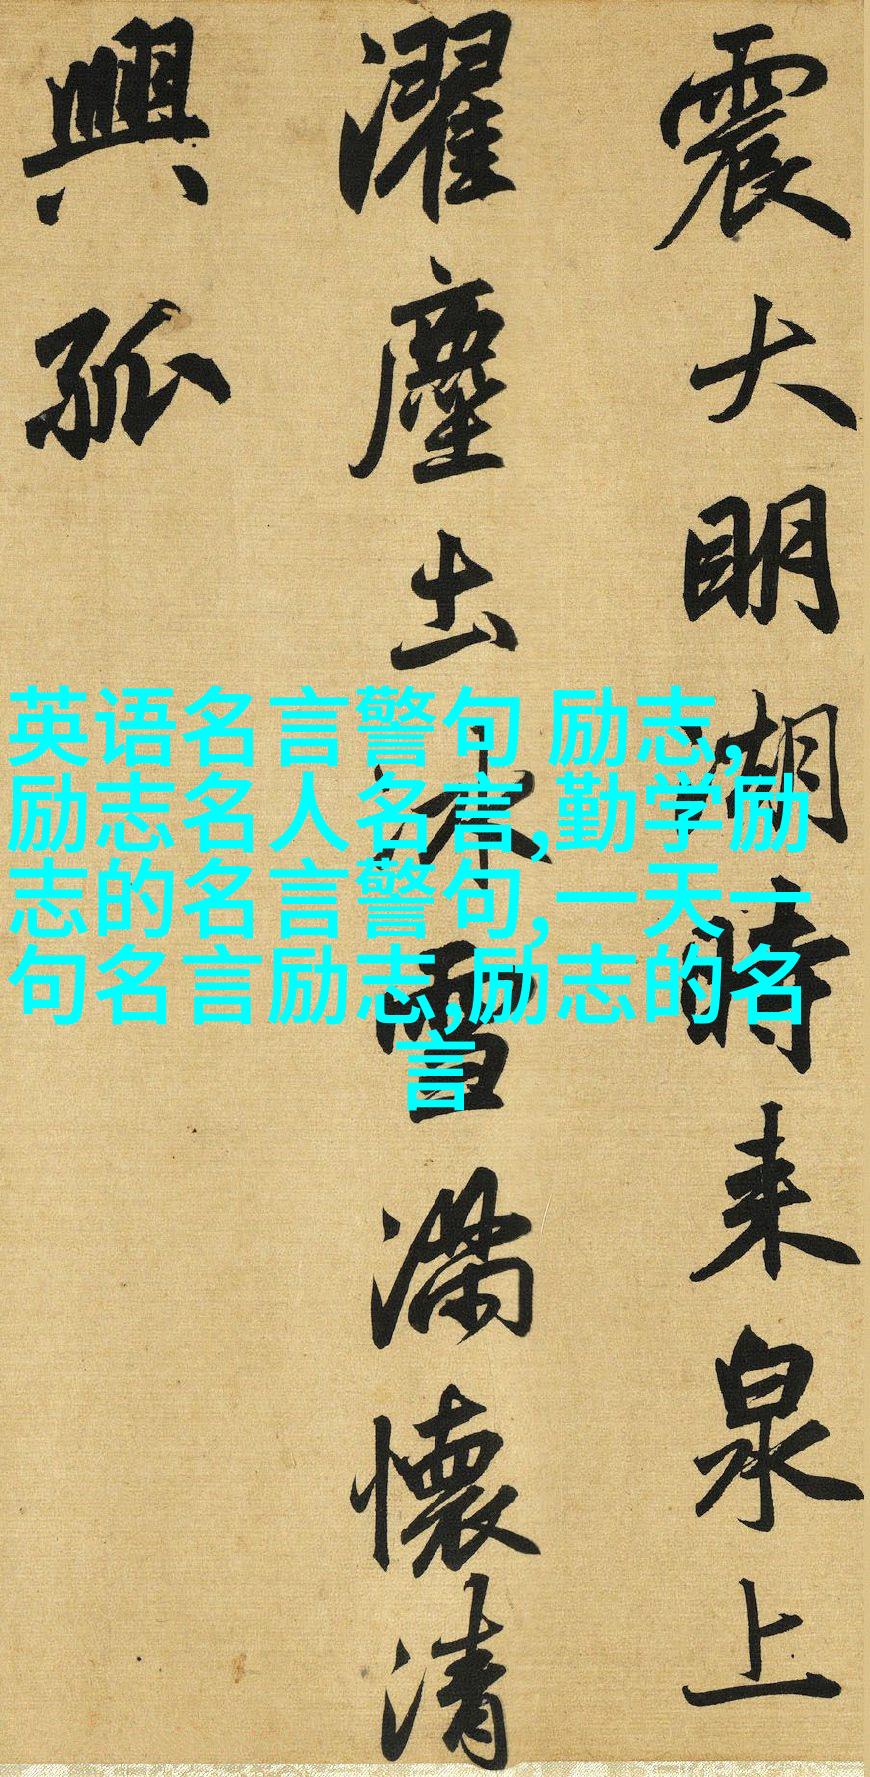 震大明湖時来泉上
濯塵土冰雪滿懷清
興孤
英语名言警句 励志,
励志名人名言,勤学励
志的名言警句,一天一
句名言励志,励志的名
言